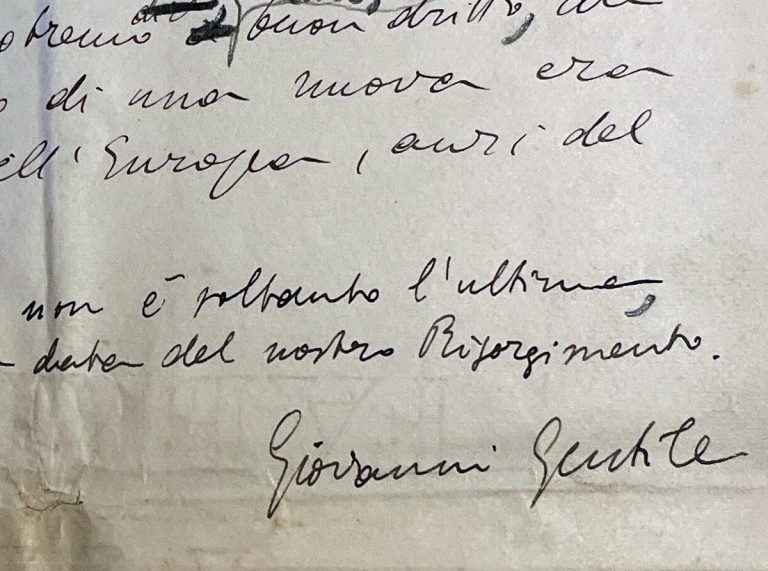 buon dritto,
di una nuova era
ell'Europa, anzi del
non è soltanto l'ultima,
data del nostro Risorgimento.
Giovanni Gentile